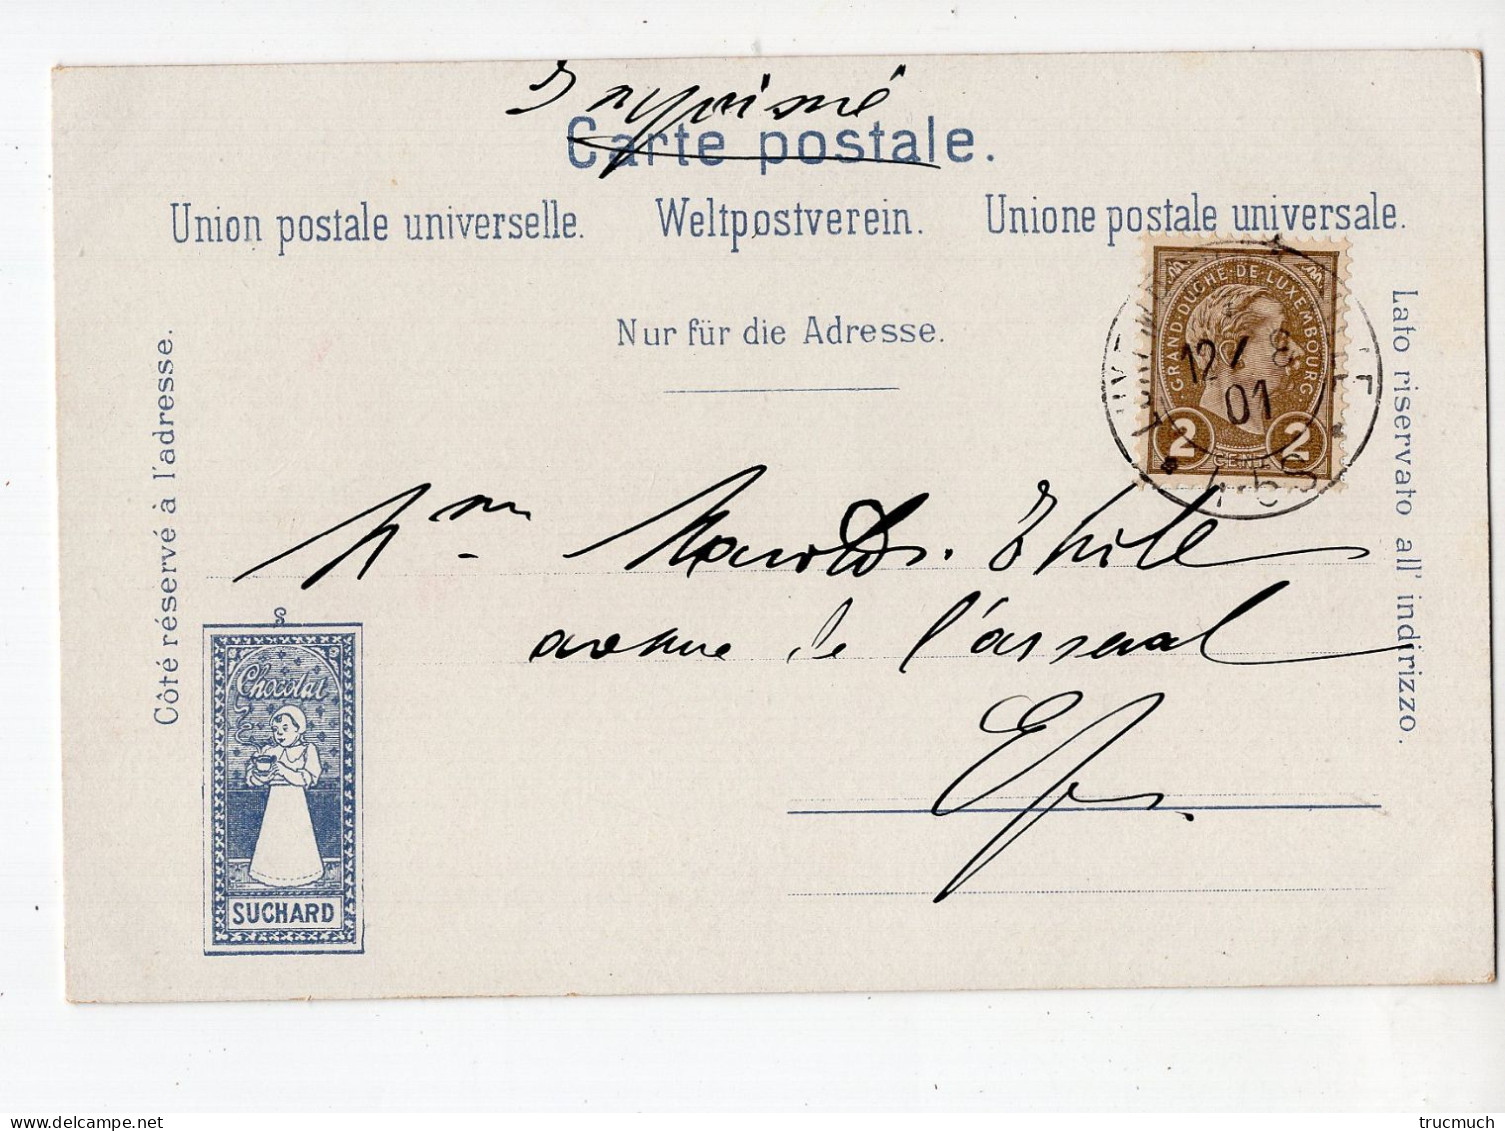 Imprimé
Carte postale.
Union postale universelle. Weltpostverein. Unione postale universale.
Nur für die Adresse.
Côté réservé à l'adresse.
Lato riservato all' indirizzo.
GRAND-DUCHÉ-DE-LUXEMBOURG
12 8
01
2 2
CENT
avenue de l'arsenal
E/v
S
Chocolat
SUCHARD
trucmuch